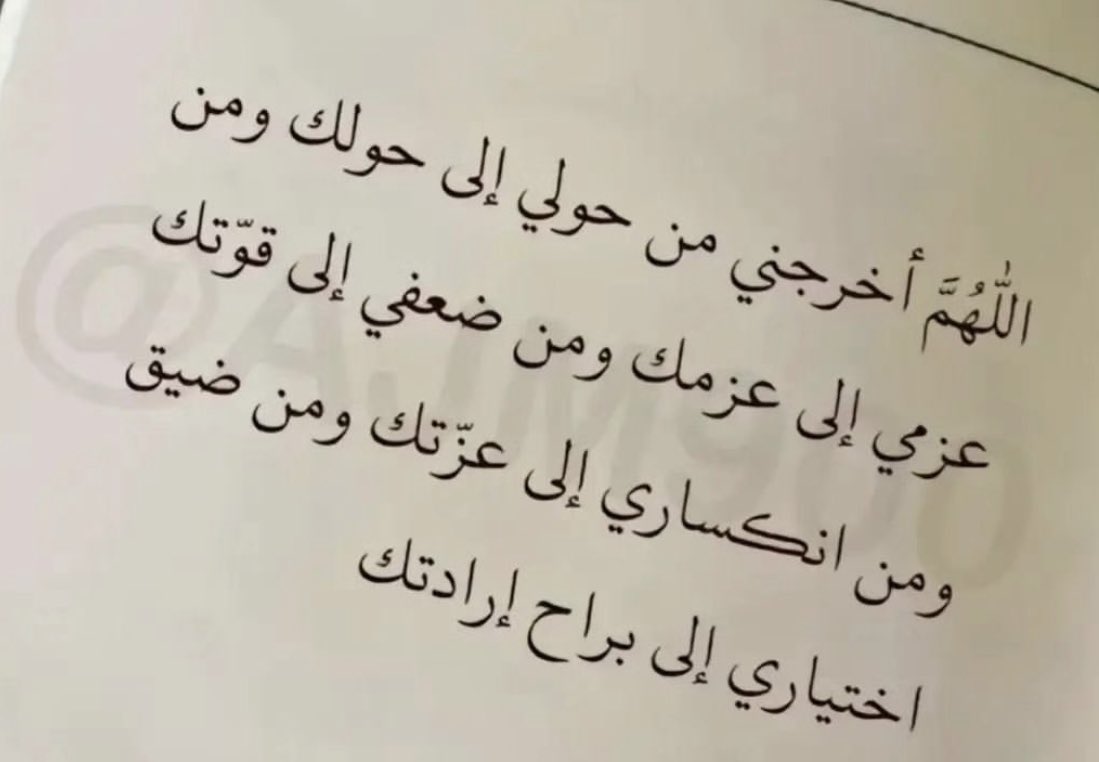 اللّٰهُمَّ أخرجني من حولي إلى حولك ومن
عزمي إلى عزمك ومن ضعفي إلى قوّتك
ومن انكساري إلى عزّتك ومن ضيق
اختياري إلى براح إرادتك